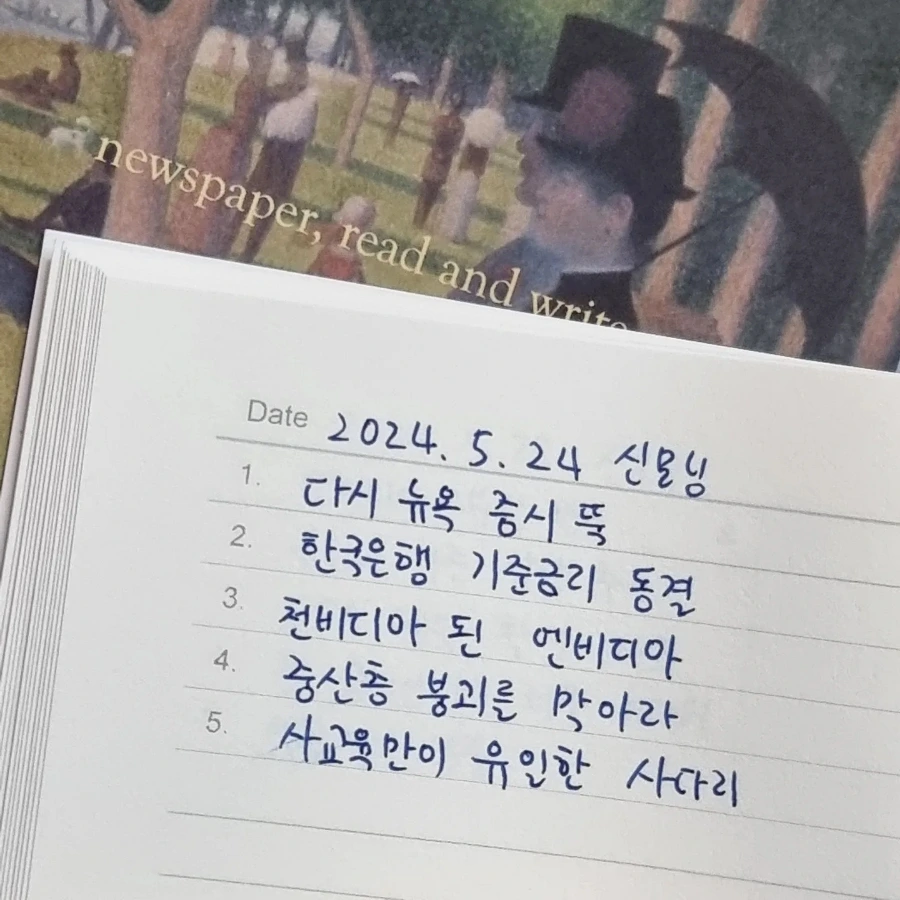 newspaper, read and write
Date 2024. 5. 24 신모닝
1. 다시 뉴욕 증시 뚝
2. 한국은행 기준금리 동결
3. 천비디아 된 엔비디아
4. 중산층 붕괴를 막아라
5. 사교육만이 유일한 사다리